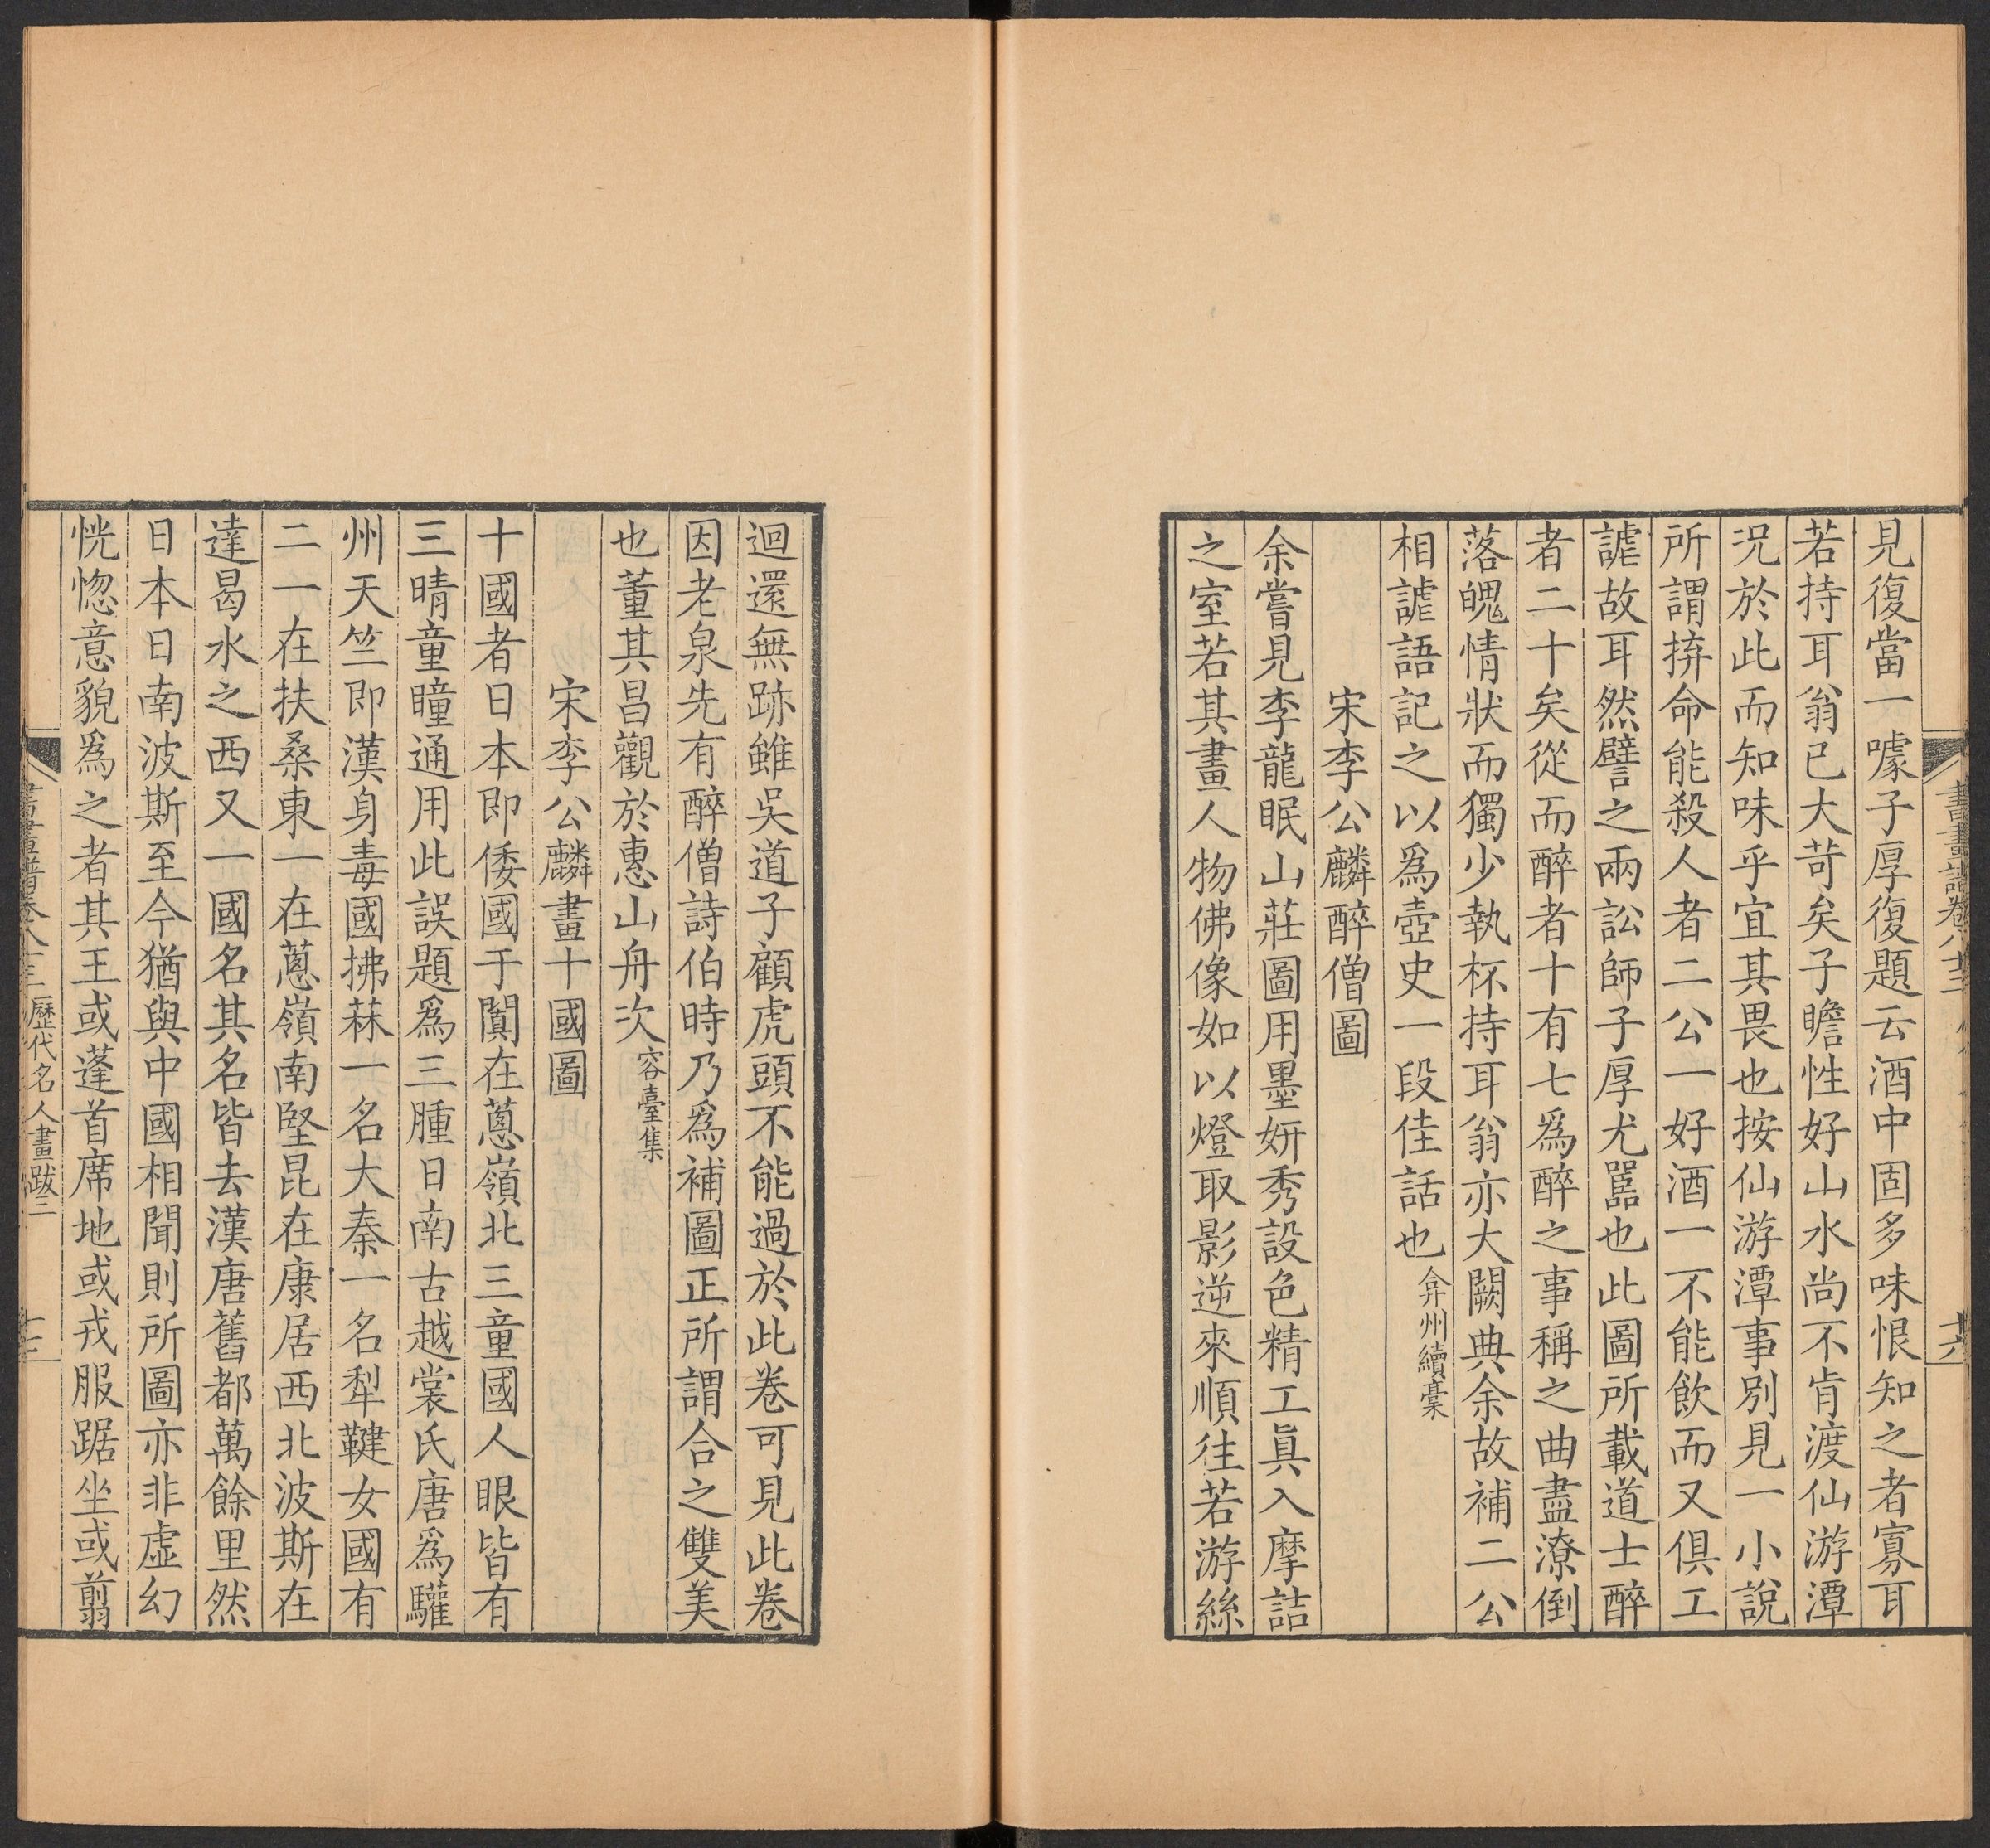 見復當一噱子厚復題云酒中固多味恨知之者寡耳
若持耳翁已大苛矣子瞻性好山水尚不肯渡仙游潭
況於此而知味乎宜其畏也按仙游潭事別見一小說
所謂拚命能殺人者二公一好酒一不能飲而又俱工
謔故耳然譬之兩訟師子厚尤嚚也此圖所載道士醉
者二十矣從而醉者十有七為醉之事稱之曲盡潦倒
落魄情狀而獨少執杯持耳翁亦大闕典余故補二公
相謔語記之以為壺史一段佳話也弇州續稾
宋李公麟醉僧圖
余嘗見李龍眠山莊圖用墨妍秀設色精工眞入摩詰
之室若其畫人物佛像如以燈取影逆來順往若游絲
迴還無跡雖吳道子顧虎頭不能過於此卷可見此卷
因老泉先有醉僧詩伯時乃爲補圖正所謂合之雙美
也董其昌觀於惠山舟次容臺集
宋李公麟畫十國圖
十國者日本即倭國于闐在蔥嶺北三童國人眼皆有
三睛童瞳通用此誤題爲三腫日南古越裳氏唐爲驩
州天竺即漢身毒國拂菻一名大秦一名犁鞬女國有
二一在扶桑東一在蔥嶺南堅昆在康居西北波斯在
達曷水之西又一國名其名皆去漢唐舊都萬餘里然
日本日南波斯至今猶與中國相聞則所圖亦非虛幻
恍惚意貌爲之者其王或蓬首席地或戎服踞坐或翦
歷代名人畫跋三